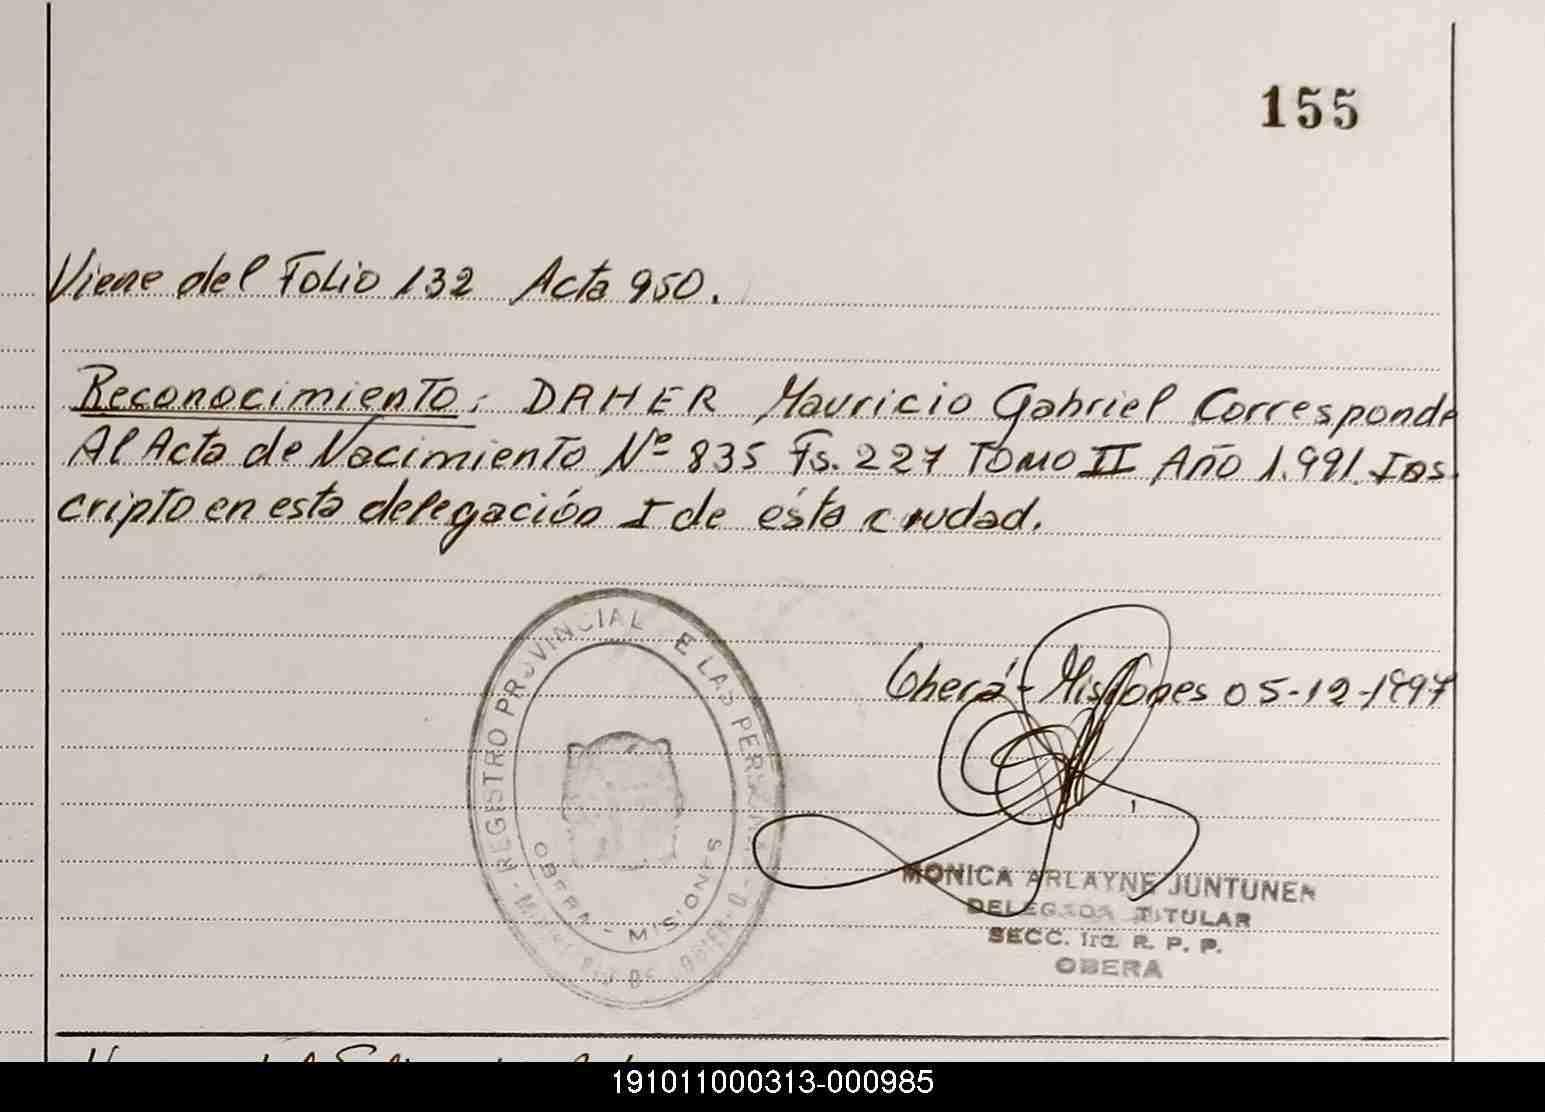 155
Viene del Folio 132 Acta 950.
Reconocimiento: DAHER Mauricio Gabriel Corresponde
Al Acta de Nacimiento Nº 835 Fs. 227 Tomo II Año 1.991. Ins-
cripto en esta delegación I de ésta ciudad.
Oberá - Misiones 05-12-1997
REGISTRO PROVINCIAL DE LAS PERSONAS
OBERA - MISIONES
MONICA ARLAYNE JUNTUNEN
DELEGADA TITULAR
SECC. 1ra. R. P. P.
OBERA
191011000313-000985